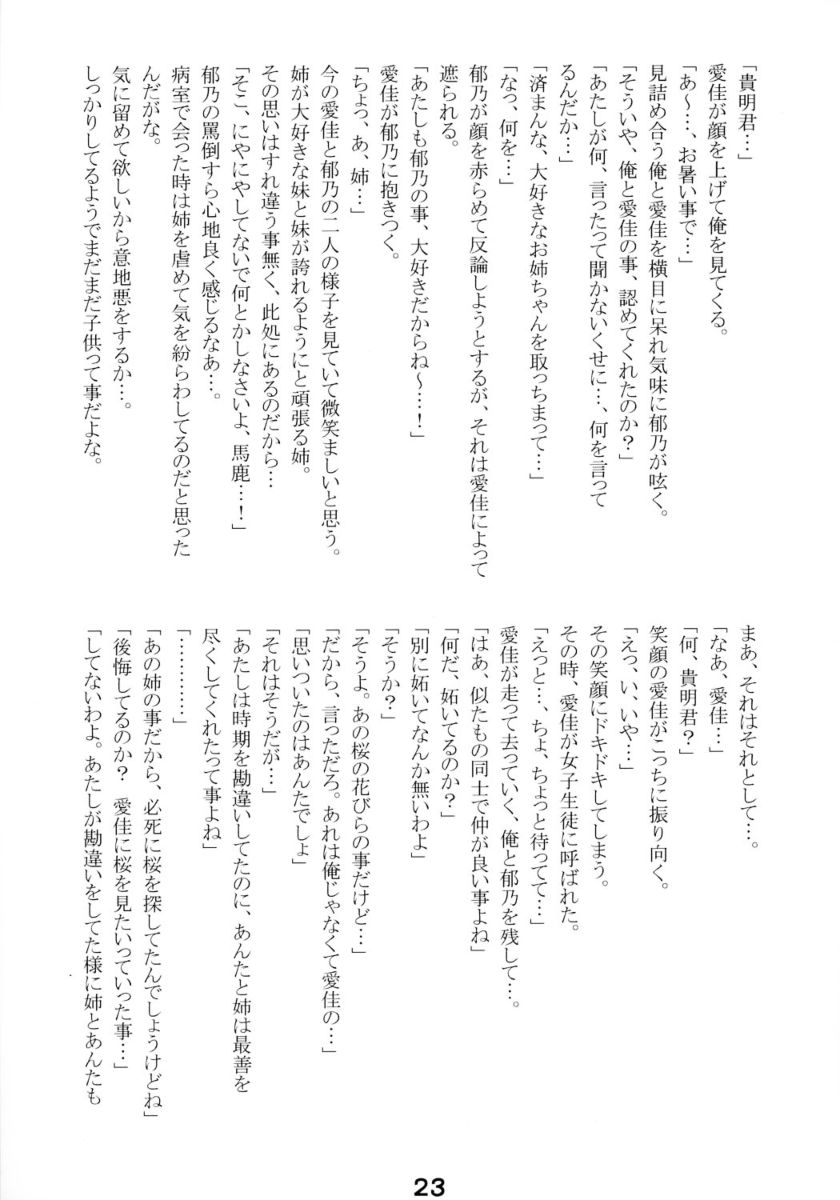 「貴明君…」
愛佳が顔を上げて俺を見てくる。
「あ～…、お暑い事で…」
見詰め合う俺と愛佳を横目に呆れ気味に郁乃が呟く。
「そういや、俺と愛佳の事、認めてくれたのか？」
「あたしが何、言ったって聞かないくせに…、何を言って
るんだか…」
「済まんな、大好きなお姉ちゃんを取っちまって…」
「なっ、何を…」
郁乃が顔を赤らめて反論しようとするが、それは愛佳によって
遮られる。
「あたしも郁乃の事、大好きだからね～…！」
愛佳が郁乃に抱きつく。
「ちょっ、あ、姉…」
今の愛佳と郁乃の二人の様子を見ていて微笑ましいと思う。
姉が大好きな妹と妹が誇れるようにと頑張る姉。
その思いはすれ違う事無く、此処にあるのだから…
「そこ、にやにやしてないで何とかしなさいよ、馬鹿…！」
郁乃の罵倒すら心地良く感じるなぁ…。
病室で会った時は姉を虐めて気を紛らわしてるのだと思った
んだがな。
気に留めて欲しいから意地悪をするか…。
しっかりしてるようでまだまだ子供って事だよな。
まあ、それはそれとして…。
「なあ、愛佳…」
「何、貴明君？」
笑顔の愛佳がこっちに振り向く。
「えっ、い、いや…」
その笑顔にドキドキしてしまう。
その時、愛佳が女子生徒に呼ばれた。
「えっと…、ちょ、ちょっと待ってて…」
愛佳が走って去っていく、俺と郁乃を残して…。
「はあ、似たもの同士で仲が良い事よね」
「何だ、妬いてるのか？」
「別に妬いてなんか無いわよ」
「そうか？」
「そうよ。あの桜の花びらの事だけど…」
「だから、言っただろ。あれは俺じゃなくて愛佳の…」
「思いついたのはあんたでしょ」
「それはそうだが…」
「あたしは時期を勘違いしてたのに、あんたと姉は最善を
尽くしてくれたって事よね」
「…………」
「あの姉の事だから、必死に桜を探してたんでしょうけどね」
「後悔してるのか？　愛佳に桜を見たいっていった事…」
「してないわよ。あたしが勘違いをしてた様に姉とあんたも
23